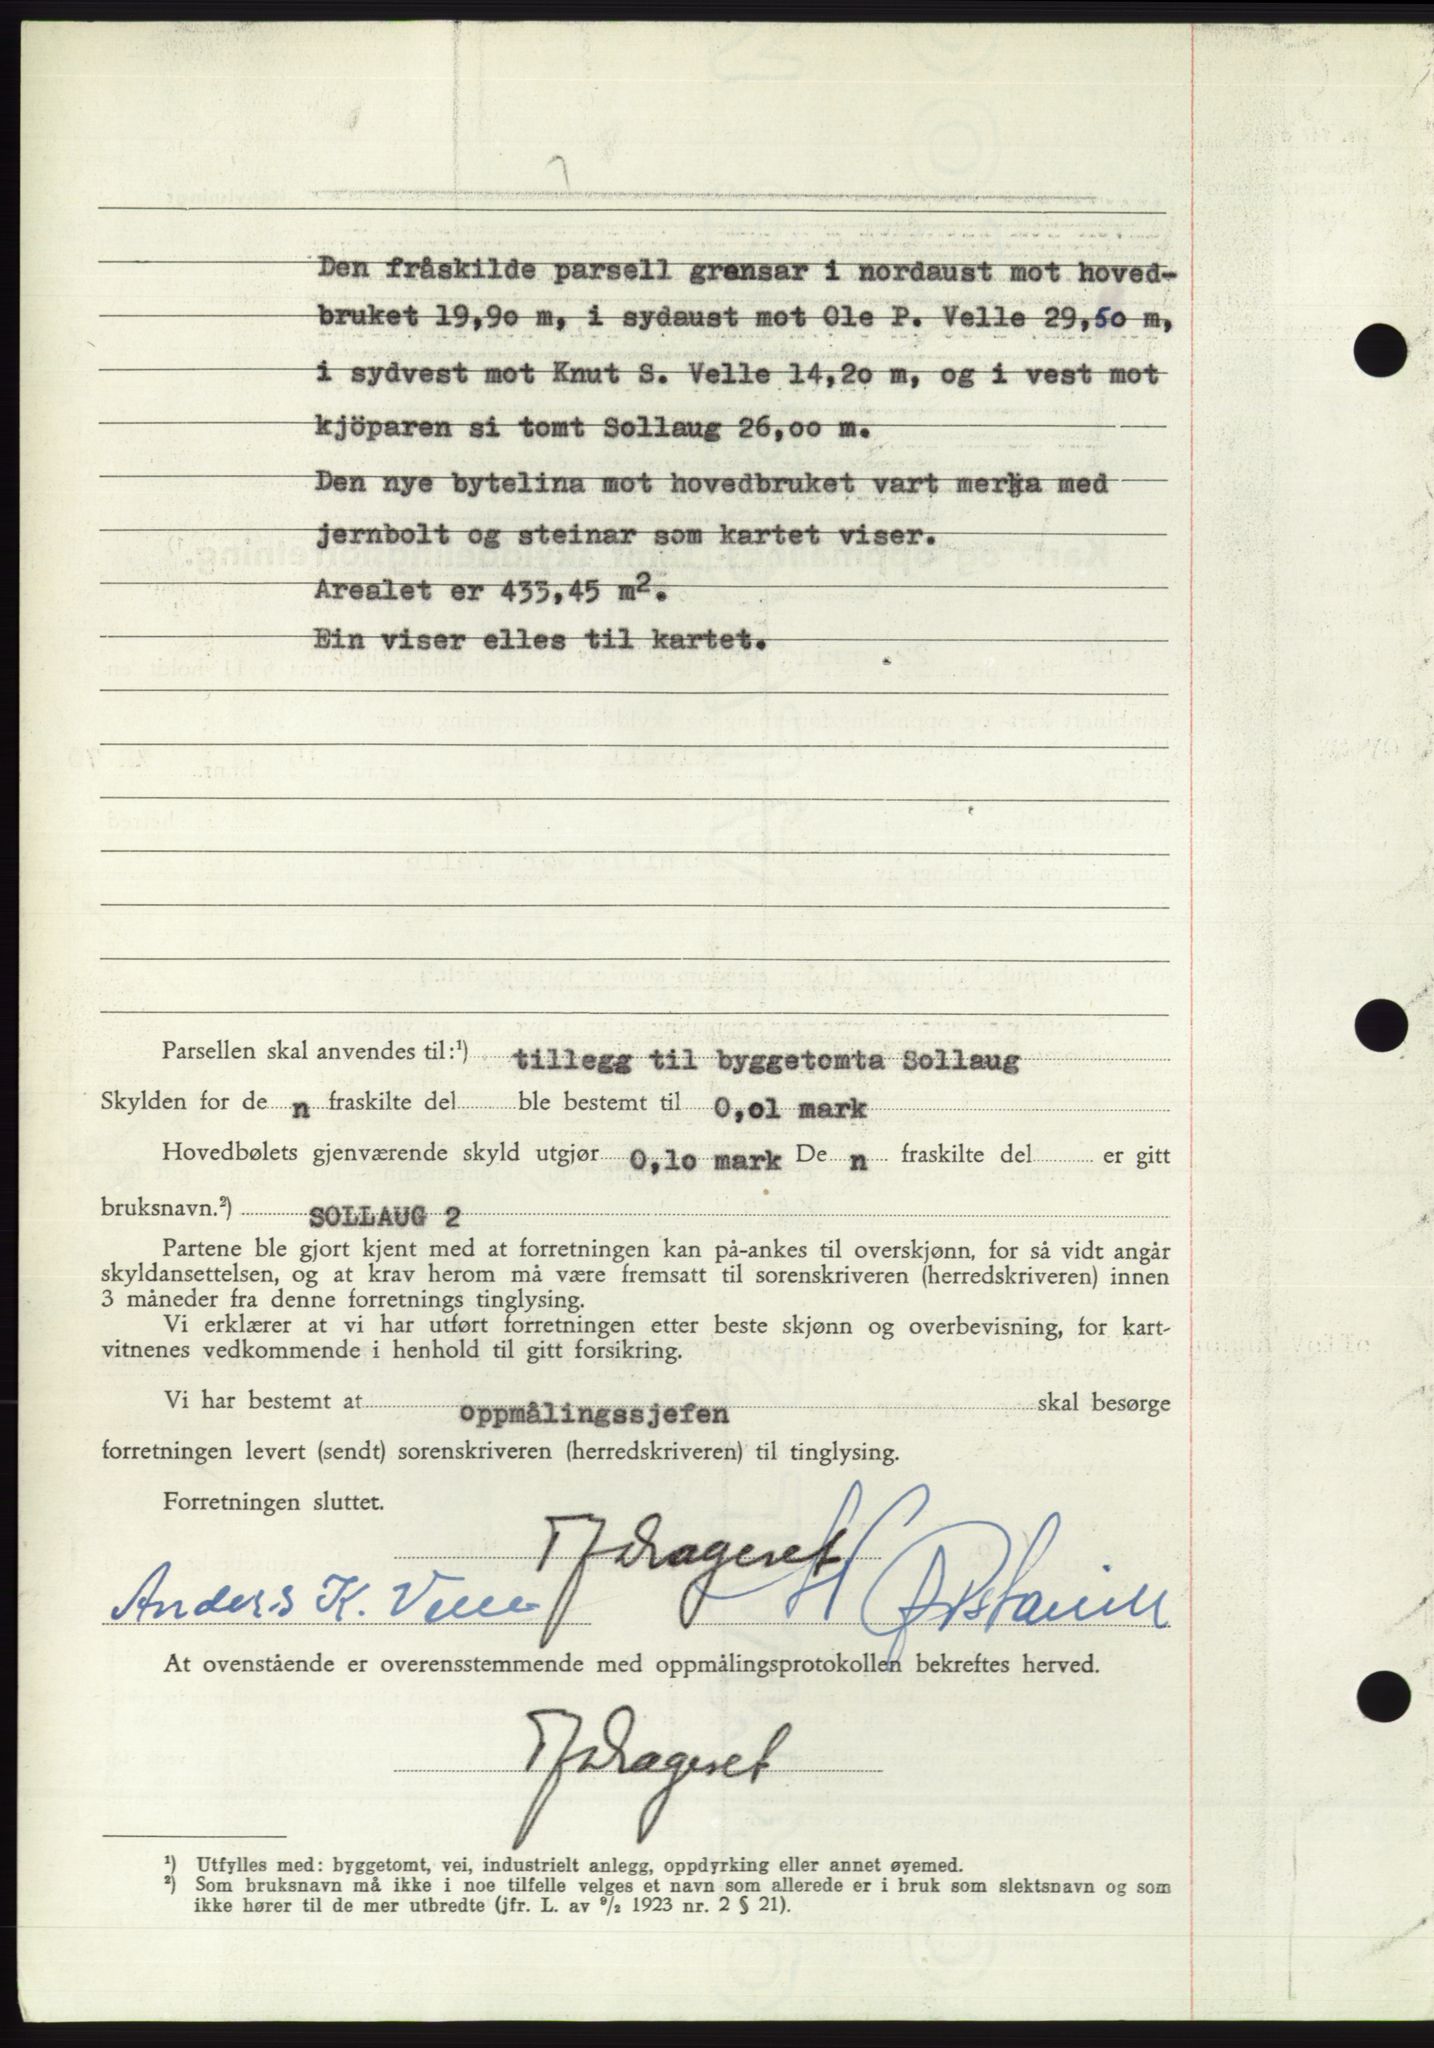 Den fråskilde parsell grensar i nordaust mot hoved-
bruket 19,90 m, i sydaust mot Ole P. Velle 29,50 m,
i sydvest mot Knut S. Velle 14,20 m, og i vest mot
kjöparen si tomt Sollaug 26,00 m.
Den nye bytelina mot hovedbruket vart merka med
jernbolt og steinar som kartet viser.
Arealet er 433,45 m².
Ein viser elles til kartet.
Parsellen skal anvendes til:¹) tillegg til byggetomta Sollaug
Skylden for de n fraskilte del ble bestemt til 0,01 mark
Hovedbølets gjenværende skyld utgjør 0,10 mark De n fraskilte del er gitt
bruksnavn.²) SOLLAUG 2
Partene ble gjort kjent med at forretningen kan på-ankes til overskjønn, for så vidt angår
skyldansettelsen, og at krav herom må være fremsatt til sorenskriveren (herredskriveren) innen
3 måneder fra denne forretnings tinglysing.
Vi erklærer at vi har utført forretningen etter beste skjønn og overbevisning, for kart-
vitnenes vedkommende i henhold til gitt forsikring.
Vi har bestemt at oppmålingssjefen skal besørge
forretningen levert (sendt) sorenskriveren (herredskriveren) til tinglysing.
Forretningen sluttet.
Drageset
Anders K. Velle
At ovenstående er overensstemmende med oppmålingsprotokollen bekreftes herved.
Drageset
¹) Utfylles med: byggetomt, vei, industrielt anlegg, oppdyrking eller annet øyemed.
²) Som bruksnavn må ikke i noe tilfelle velges et navn som allerede er i bruk som slektsnavn og som
ikke hører til de mer utbredte (jfr. L. av ⁹/₂ 1923 nr. 2 § 21).